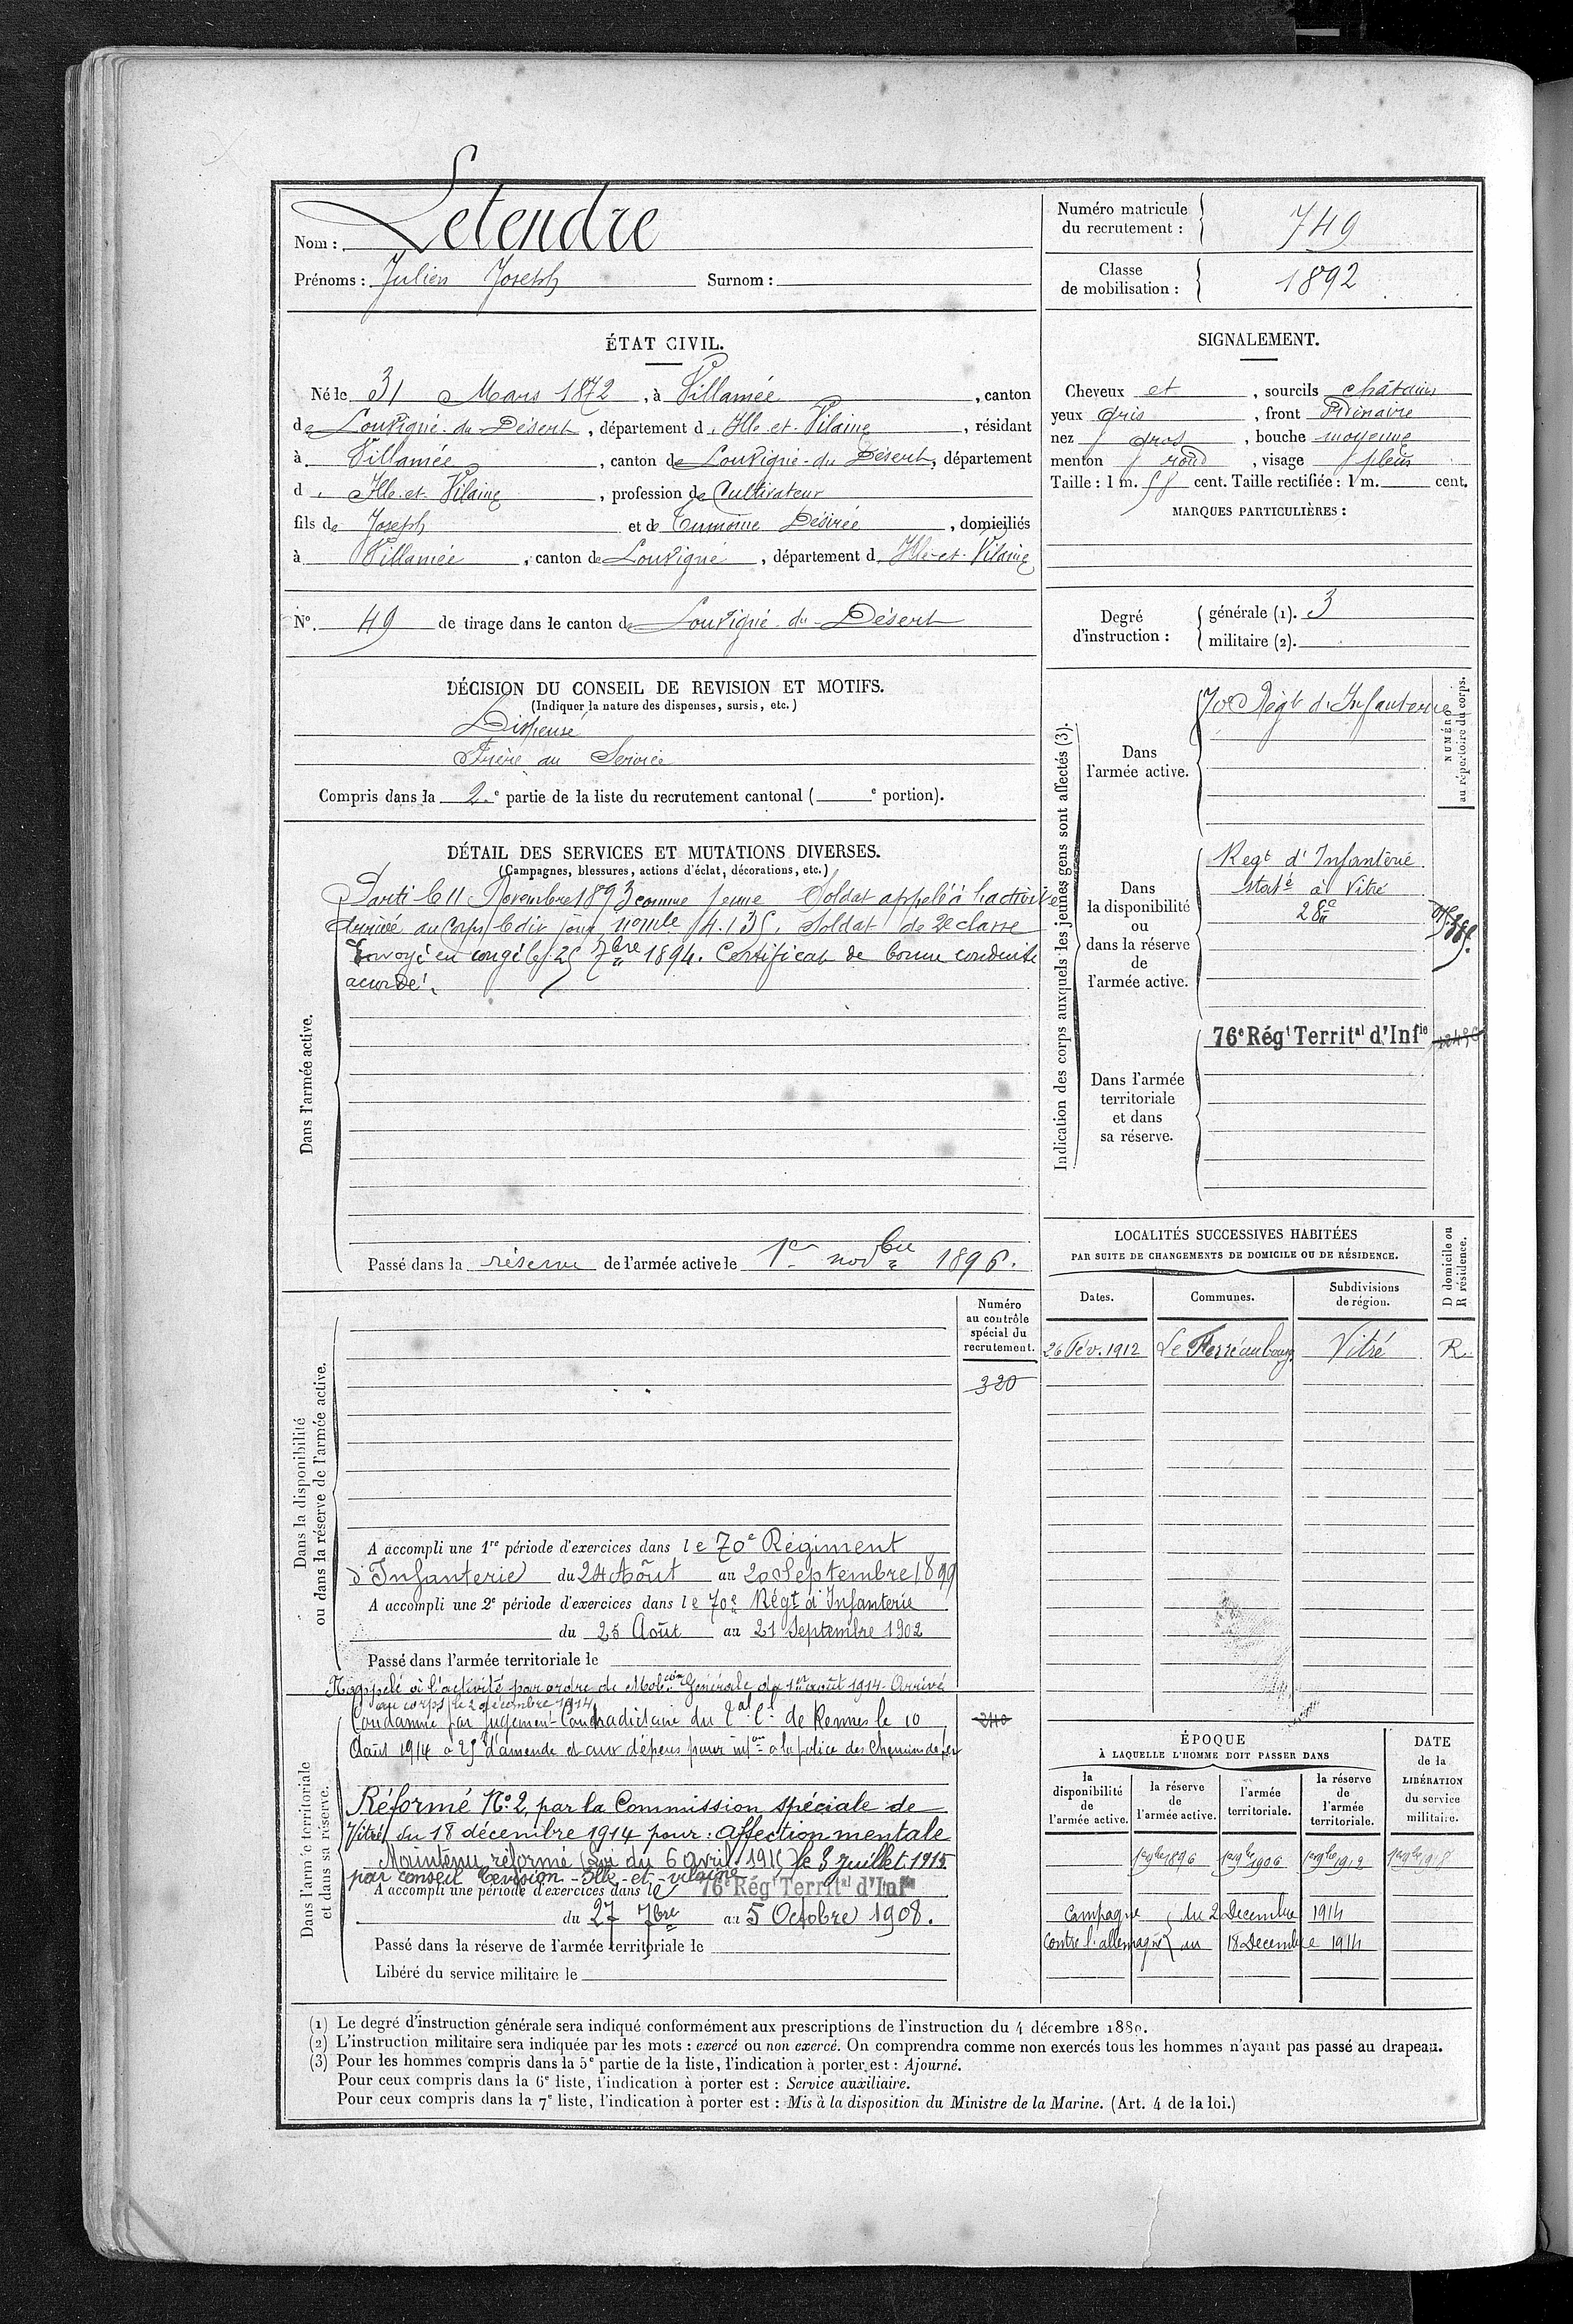 Nom : Letendre
Prénoms : Julien Joseph Surnom :
Numéro matricule
du recrutement : 749
Classe
de mobilisation : 1892
ÉTAT CIVIL.
Né le 31 Mars 1872, à Villamée, canton
de Louvigné-du-Désert, département d'Ille-et-Vilaine, résidant
à Villamée, canton de Louvigné-du-Désert, département
d'Ille-et-Vilaine, profession de Cultivateur
fils de Joseph et de Désirée, domiciliés
à Villamée, canton de Louvigné, département d'Ille-et-Vilaine
N° 49 de tirage dans le canton de Louvigné-du-Désert
SIGNALEMENT.
Cheveux et, sourcils châtains
yeux gris, front ordinaire
nez gros, bouche moyenne
menton rond, visage plein
Taille : 1 m. 58 cent. Taille rectifiée : 1 m. cent.
MARQUES PARTICULIÈRES :
Degré
d'instruction :
générale (1). 3
militaire (2).
DÉCISION DU CONSEIL DE REVISION ET MOTIFS.
(Indiquer la nature des dispenses, sursis, etc.)
Dispensé
Frère au Service
Compris dans la 2e partie de la liste du recrutement cantonal ( e portion).
DÉTAIL DES SERVICES ET MUTATIONS DIVERSES.
(Campagnes, blessures, actions d'éclat, décorations, etc.)
Dans l'armée active.
Parti le 11 Novembre 1893 comme jeune Soldat appelé à l'activité
Arrivé au Corps le dit jour no mle 4.135. Soldat de 2e classe
Envoyé en congé le 25 7bre 1894. Certificat de bonne conduite
accordé.
Passé dans la réserve de l'armée active le 1er novbre 1896.
Indication des corps auxquels les jeunes gens sont affectés (3).
NUMÉRO
au répertoire du corps.
Dans
l'armée active.
70e Régt d'Infanterie
Dans
la disponibilité
ou
dans la réserve
de
l'armée active.
Regt d'Infanterie
staté à Vitré
Dans l'armée
territoriale
et dans
sa réserve.
76e Régt Territal d'Infie
LOCALITÉS SUCCESSIVES HABITÉES
PAR SUITE DE CHANGEMENTS DE DOMICILE OU DE RÉSIDENCE.
D domicile ou
R résidence.
Dates. Communes. Subdivisions
de région.
26 Fév. 1912 Le Ferré au bourg Vitré R.
Numéro
au contrôle
spécial du
recrutement.
320
Dans la disponibilité
ou dans la réserve de l'armée active.
A accompli une 1re période d'exercices dans le 70e Régiment
d'Infanterie du 24 Août au 20 Septembre 1899
A accompli une 2e période d'exercices dans le 70e Régt d'Infanterie
du 25 Août au 21 Septembre 1902
Passé dans l'armée territoriale le
Rappelé à l'activité par ordre de Mobion Générale du 1er août 1914. Arrivé
au corps le 2 décembre 1914
Dans l'armée territoriale
et dans sa réserve.
Condamné par jugement Contradictoire du Tal Cel de Rennes le 10
Août 1914 à 25f d'amende et aux dépens pour infon à la police des Chemins de fer
240
Réformé N° 2, par la Commission spéciale de
Vitré du 18 décembre 1914 pour : Affection mentale
Maintenu réformé (Loi du 6 avril 1915) le 3 juillet 1915
par conseil Revision - Ille-et-vilaine
A accompli une période d'exercices dans le 76e Régt Territal d'Infie
du 27 7bre au 5 Octobre 1908.
Passé dans la réserve de l'armée territoriale le
Libéré du service militaire le
ÉPOQUE
À LAQUELLE L'HOMME DOIT PASSER DANS
DATE
de la
LIBÉRATION
du service
militaire.
la
disponibilité
de
l'armée active.
la réserve
de
l'armée active.
l'armée
territoriale.
la réserve
de
l'armée
territoriale.
1er 9bre 1896 1er 9bre 1906 1er 9bre 1912 1er 9bre 1918
Campagne du 2 Decembre 1914
contre l'allemagne au 18 Decembre 1914
(1) Le degré d'instruction générale sera indiqué conformément aux prescriptions de l'instruction du 4 décembre 1889.
(2) L'instruction militaire sera indiquée par les mots : exercé ou non exercé. On comprendra comme non exercés tous les hommes n'ayant pas passé au drapeau.
(3) Pour les hommes compris dans la 5e partie de la liste, l'indication à porter est : Ajourné.
Pour ceux compris dans la 6e liste, l'indication à porter est : Service auxiliaire.
Pour ceux compris dans la 7e liste, l'indication à porter est : Mis à la disposition du Ministre de la Marine. (Art. 4 de la loi.)